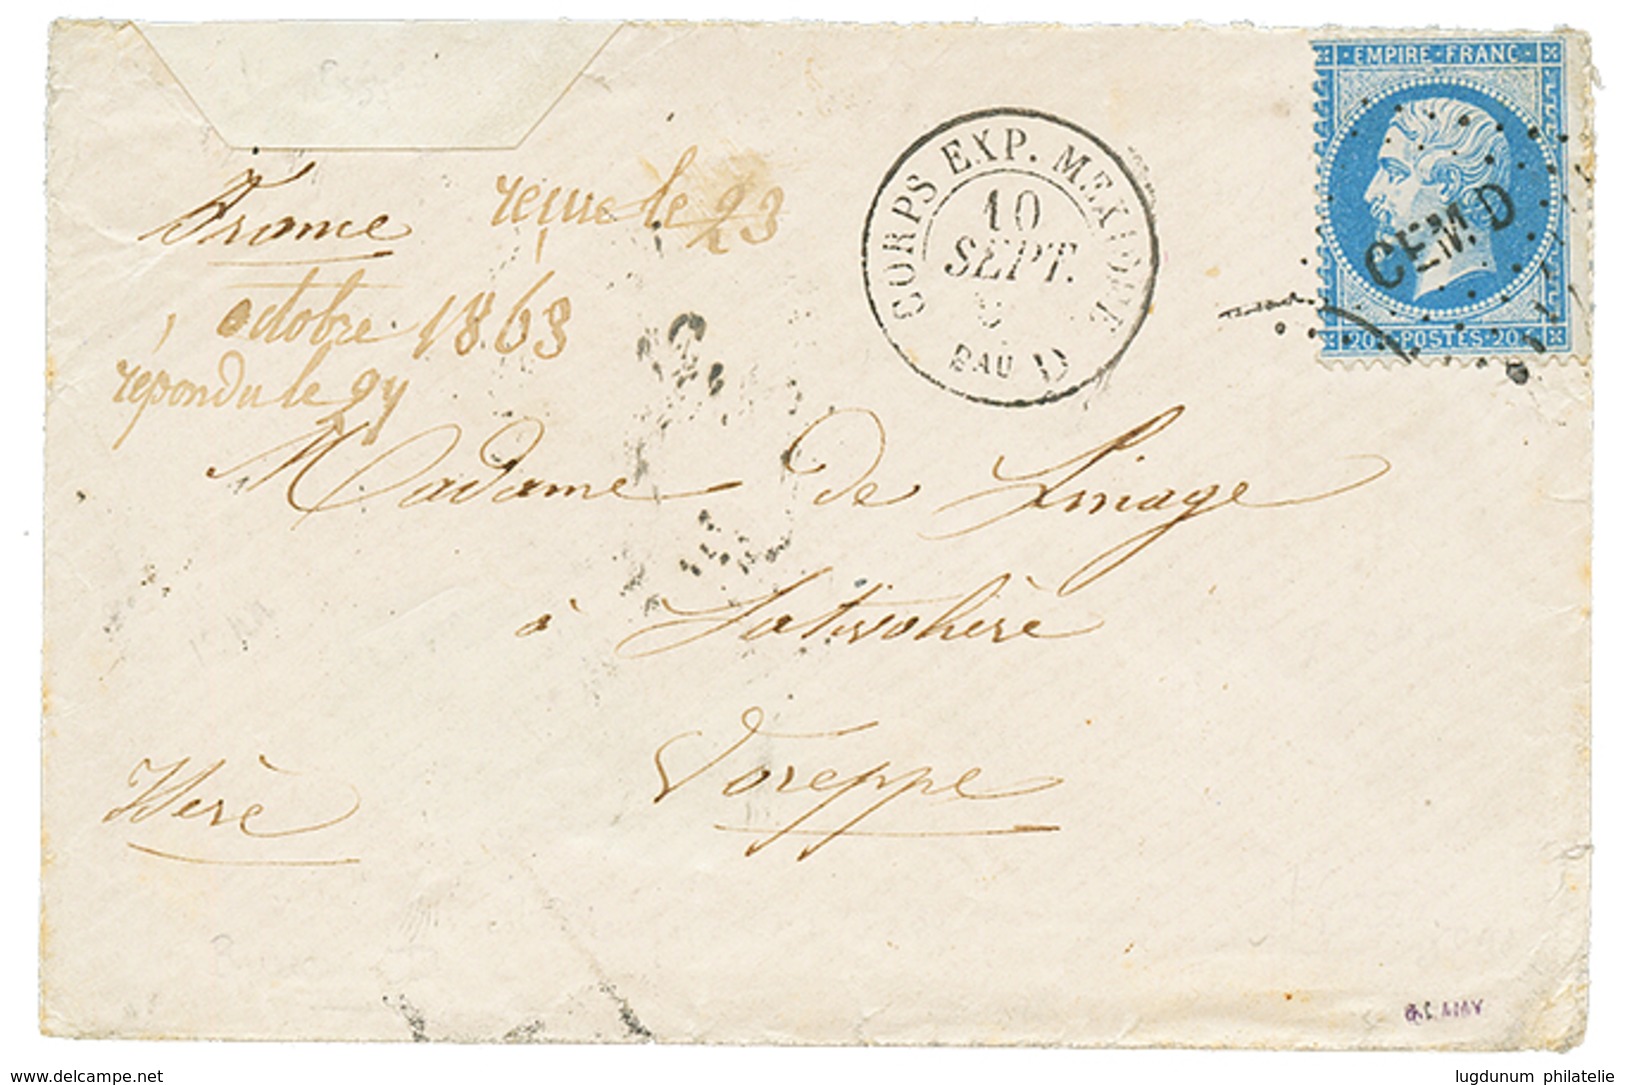 EMPIRE FRANC
CORPS EXP. MEXIQUE
10
SEPT.
BAU D
CEM. D
20 c POSTES 20 c
France
reçue le 23
octobre 1863
répondu le 24
Madame de Linage
à
Voreppe
Isère
www.delcampe.net
lugdunum philatelie